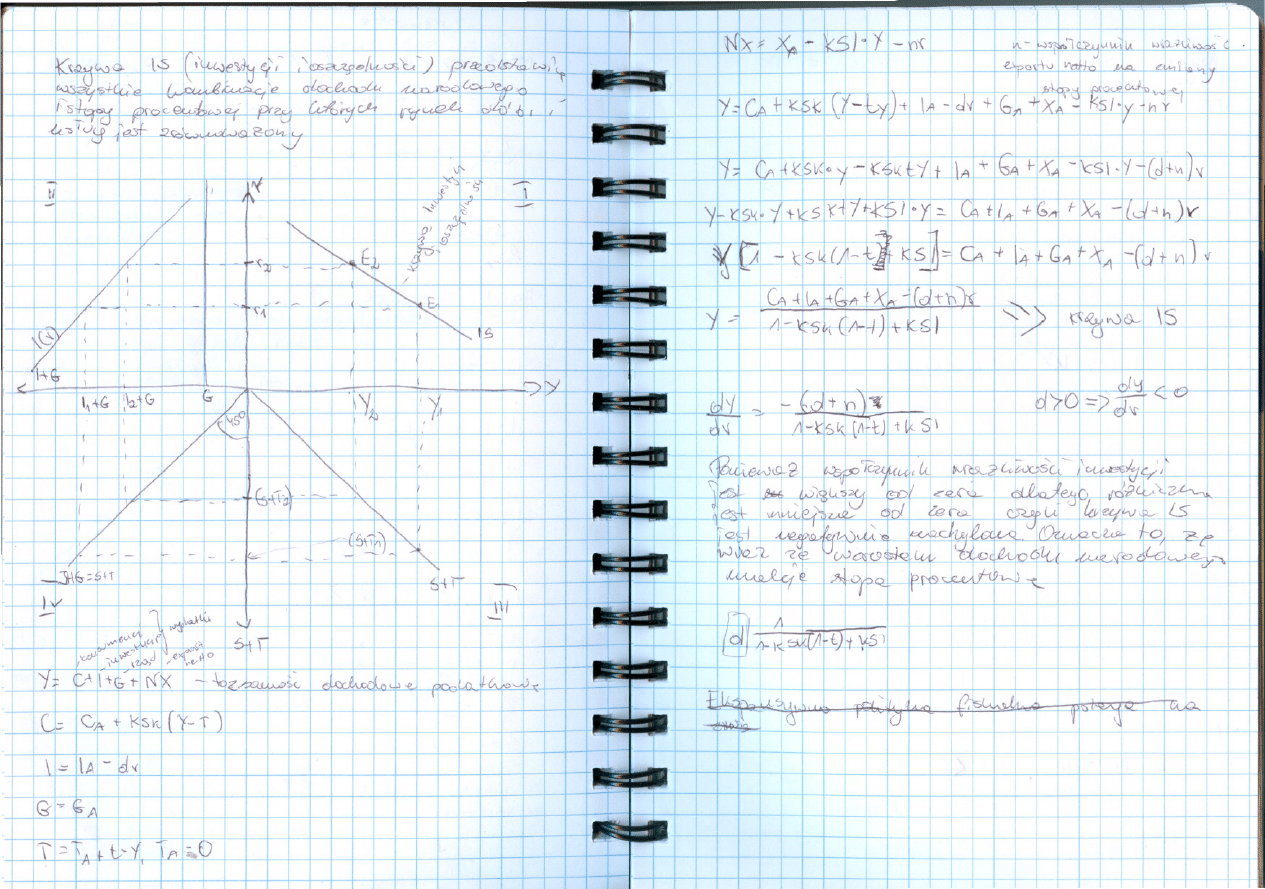 Krzywa IS (inwestycji i oszczędności) przedstawia
wszystkie kombinacje dochodu narodowego
i stopy procentowej przy których rynek dóbr i
usług jest zrównoważony
II
r
I
krzywa inwestycji
i oszczędności
r2
E2
r1
E1
IS
I(r)
I+G
I1+G
I2+G
G
Y2
Y1
Y
45°
(S+T2)
(S+T1)
I+G=S+T
S+T
IV
III
S+T
konsumenci
inwestycje
wydatki
rząd
export
netto
Y= C+I+G+NX - tożsamość dochodowo podatkowa
C= CA + KSK (Y-T)
I = IA - dr
G = GA
T = TA + t·Y, TA = 0
NX = XA - KSI·Y - nr
n - współczynnik wrażliwość
eportu netto na zmiany
stopy procentowej
Y= CA + KSK (Y-tY) + IA - dr + GA + XA - KSI·Y - nr
Y= CA + KSK·Y - KSKtY + IA + GA + XA - KSI·Y - (d+n)r
Y-KSK·Y+KSKtY+KSI·Y = CA+IA+GA+XA-(d+n)r
Y[1 - KSK(1-t) + KSI] = CA + IA + GA + XA - (d+n)r
CA+IA+GA+XA-(d+n)r
Y = 1-KSK(1-t)+KSI => krzywa IS
dY/dr = -(d+n) / 1-KSK(1-t)+KSI
d>0 => dY/dr < 0
Ponieważ współczynnik wrażliwości inwestycji
jest większy od zera dlatego różniczka
jest mniejsza od zera czyli krzywa IS
jest negatywnie nachylona Oznacza to, że
wraz ze wzrostem dochodu narodowego
maleje stopa procentowa
d 1 / 1-KSK(1-t)+KSI
Ekspansywna polityka fiskalna polega na